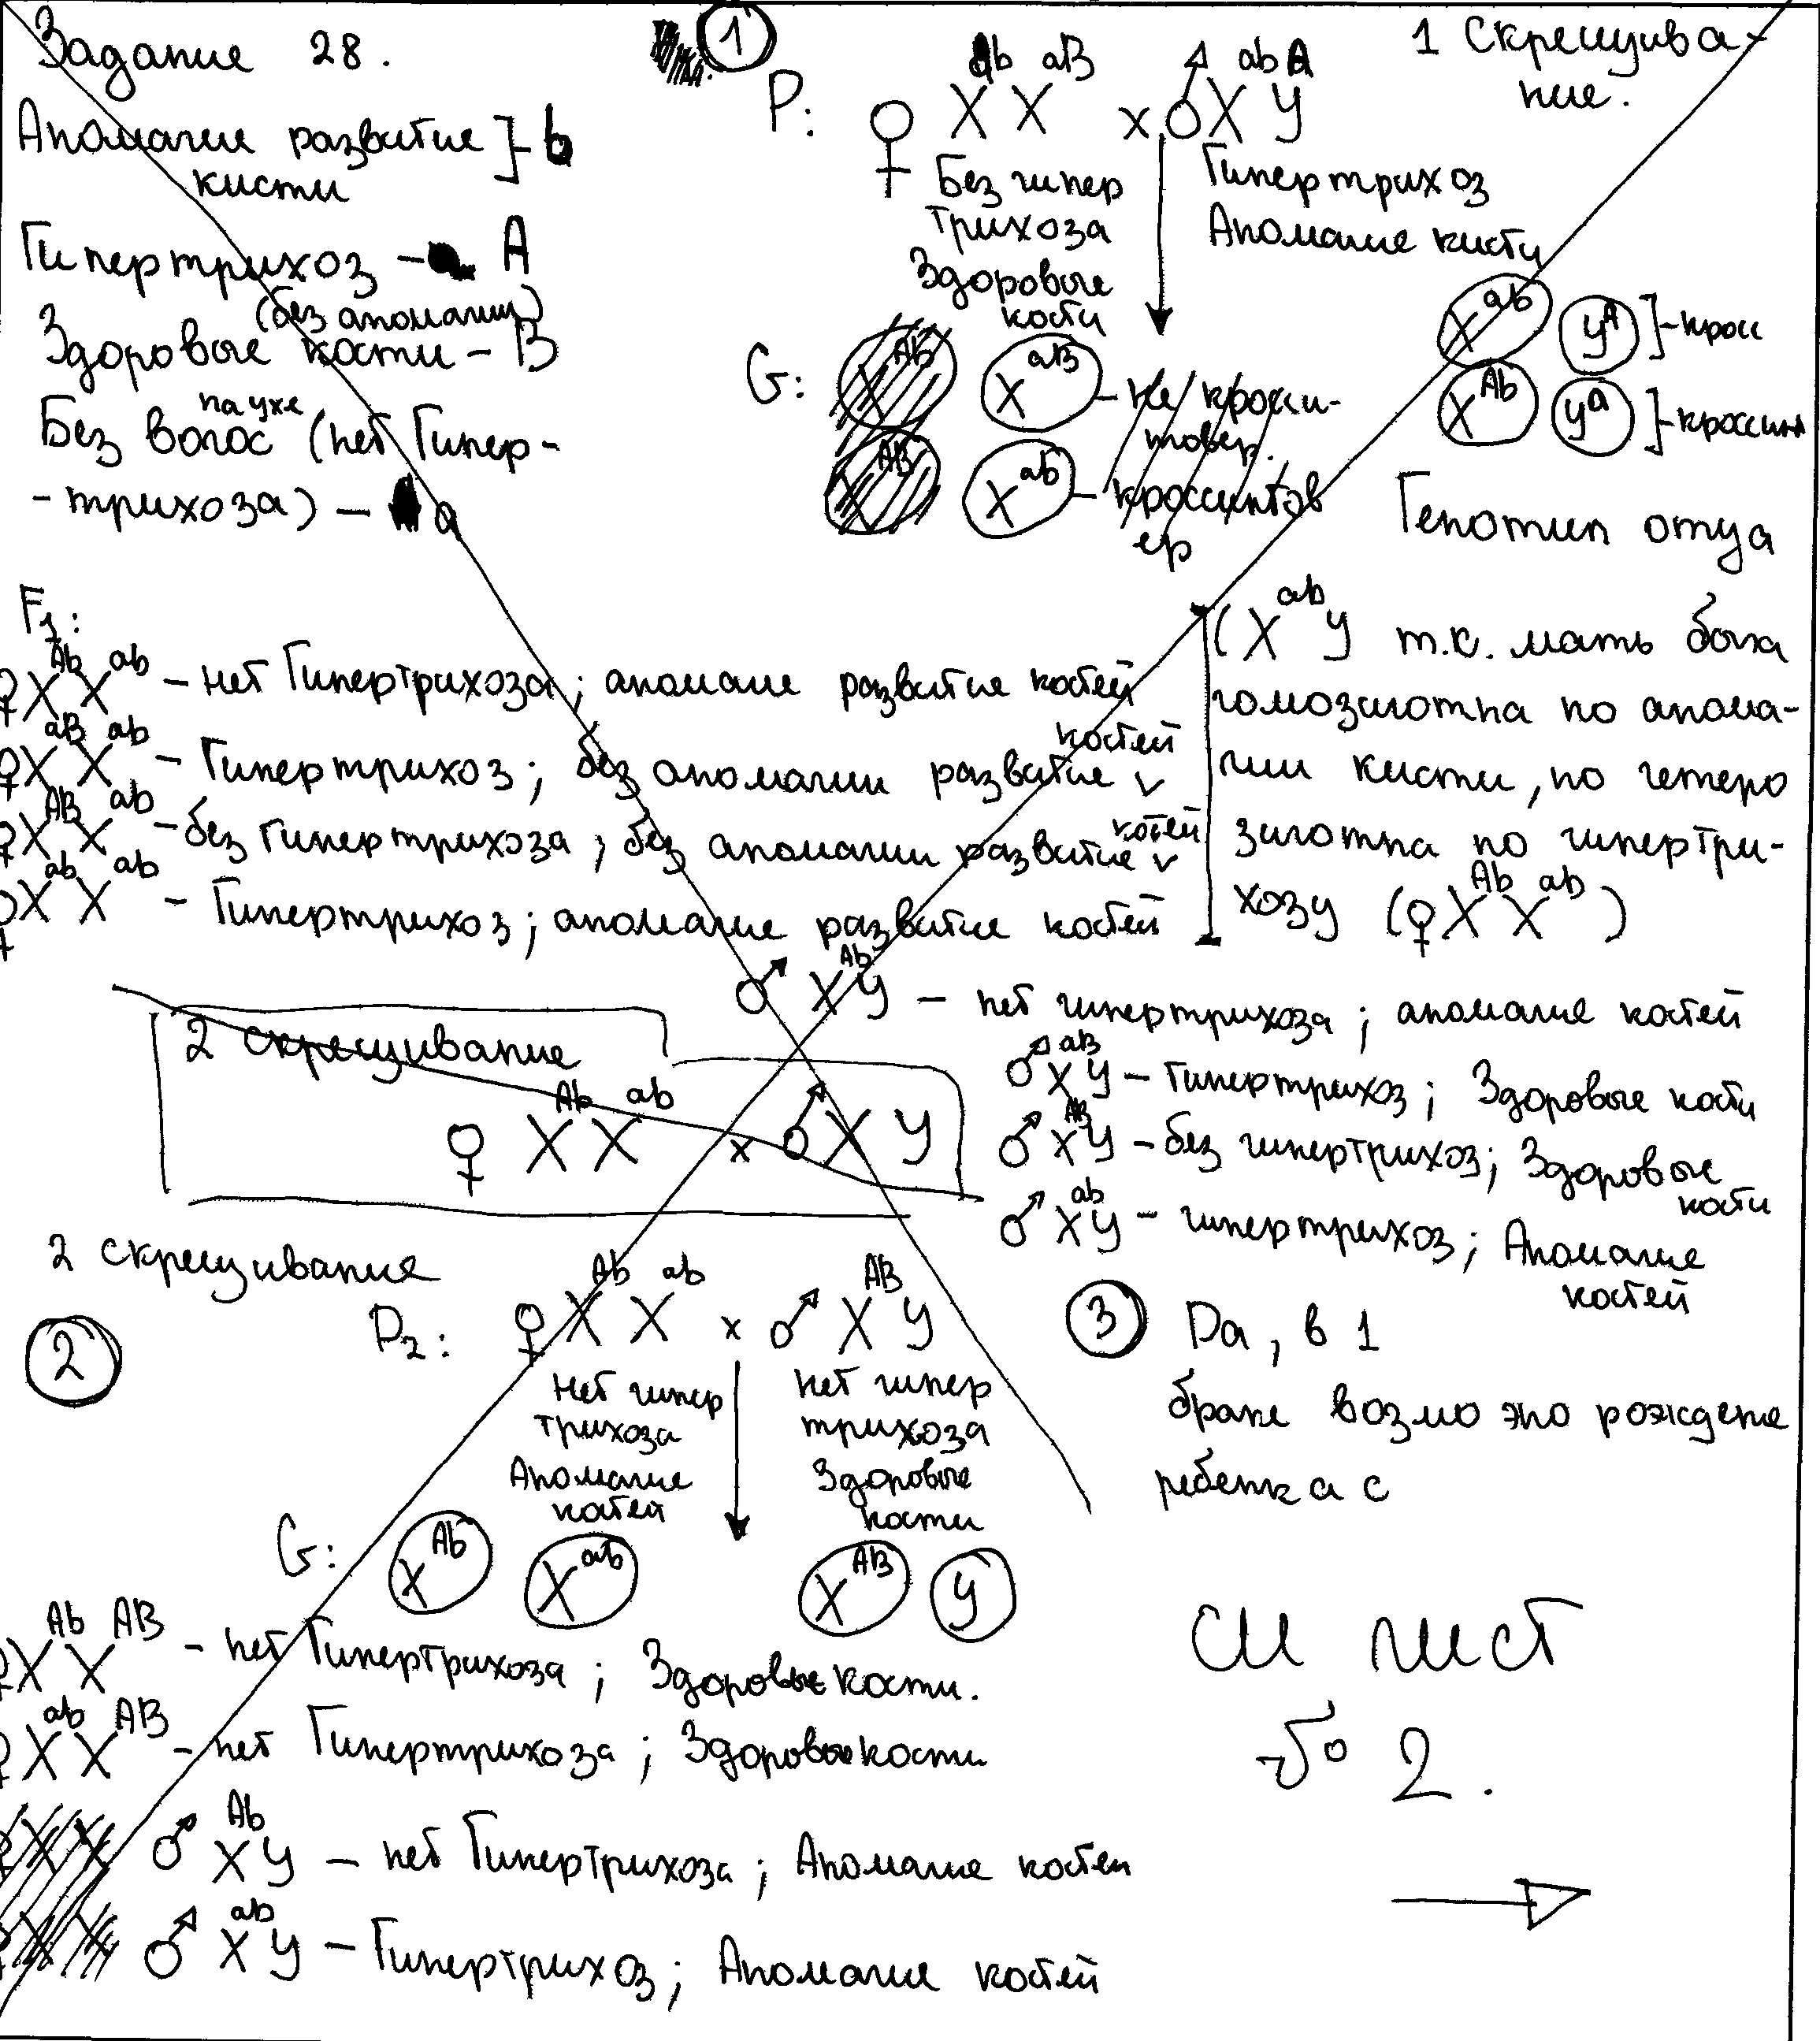 Задание 28.
Аномалие развитие ]- b
кисти
Гипертрихоз - A
(без аномалии)
Здоровые кости - B
на ухе
Без волос (нет Гипер-
-трихоза) - a
1
1 Скрещива-
ние.
Ab aB abA
P: ♀ X X x ♂ X У
Без гипер
трихоза
Здоровые
кости
Гипертрихоз
Аномалие кисти
G: X^Ab X^aB - не кросси-
товер.
X^AB X^ab - кроссинтов
ер
X^ab У^A ]- кросс
X^Ab У^a ]- кроссинг
Генотип отца
(X^ab У т.к. мать была
гомозиготна по анома-
лии кисти, но гетеро
зиготна по гипертри-
хозу (♀ X^Ab X^ab)
F1:
♀ X^Ab X^ab - нет Гипертрихоза; аномалие развитие костей
♀ X^aB X^ab - Гипертрихоз; без аномалии развитие костей
♀ X^AB X^ab - без гипертрихоза; без аномалии развитие костей
♀ X^ab X^ab - Гипертрихоз; аномалие развитие костей
♂ X^Ab У - нет гипертрихоза; аномалие костей
♂ X^aB У - Гипертрихоз; Здоровые кости
♂ X^AB У - без гипертрихоз; Здоровые
кости
♂ X^ab У - гипертрихоз; Аномалие
костей
2 скрещивание
♀ X^Ab X^ab x ♂ X У
2 скрещивание
2
P2: ♀ X^Ab X^ab x ♂ X^AB У
Нет гипер
трихоза
Аномалие
костей
нет гипер
трихоза
Здоровые
кости
G: X^Ab X^ab X^AB У
♀ X^Ab X^AB - нет Гипертрихоза; Здоровые кости.
♀ X^ab X^AB - нет Гипертрихоза; Здоровые кости
♂ X^Ab У - нет Гипертрихоза; Аномалие костей
♂ X^ab У - Гипертрихоз; Аномалие костей
3 Да, в 1
браке возможно рождене
ребенка с
См лист
№ 2.